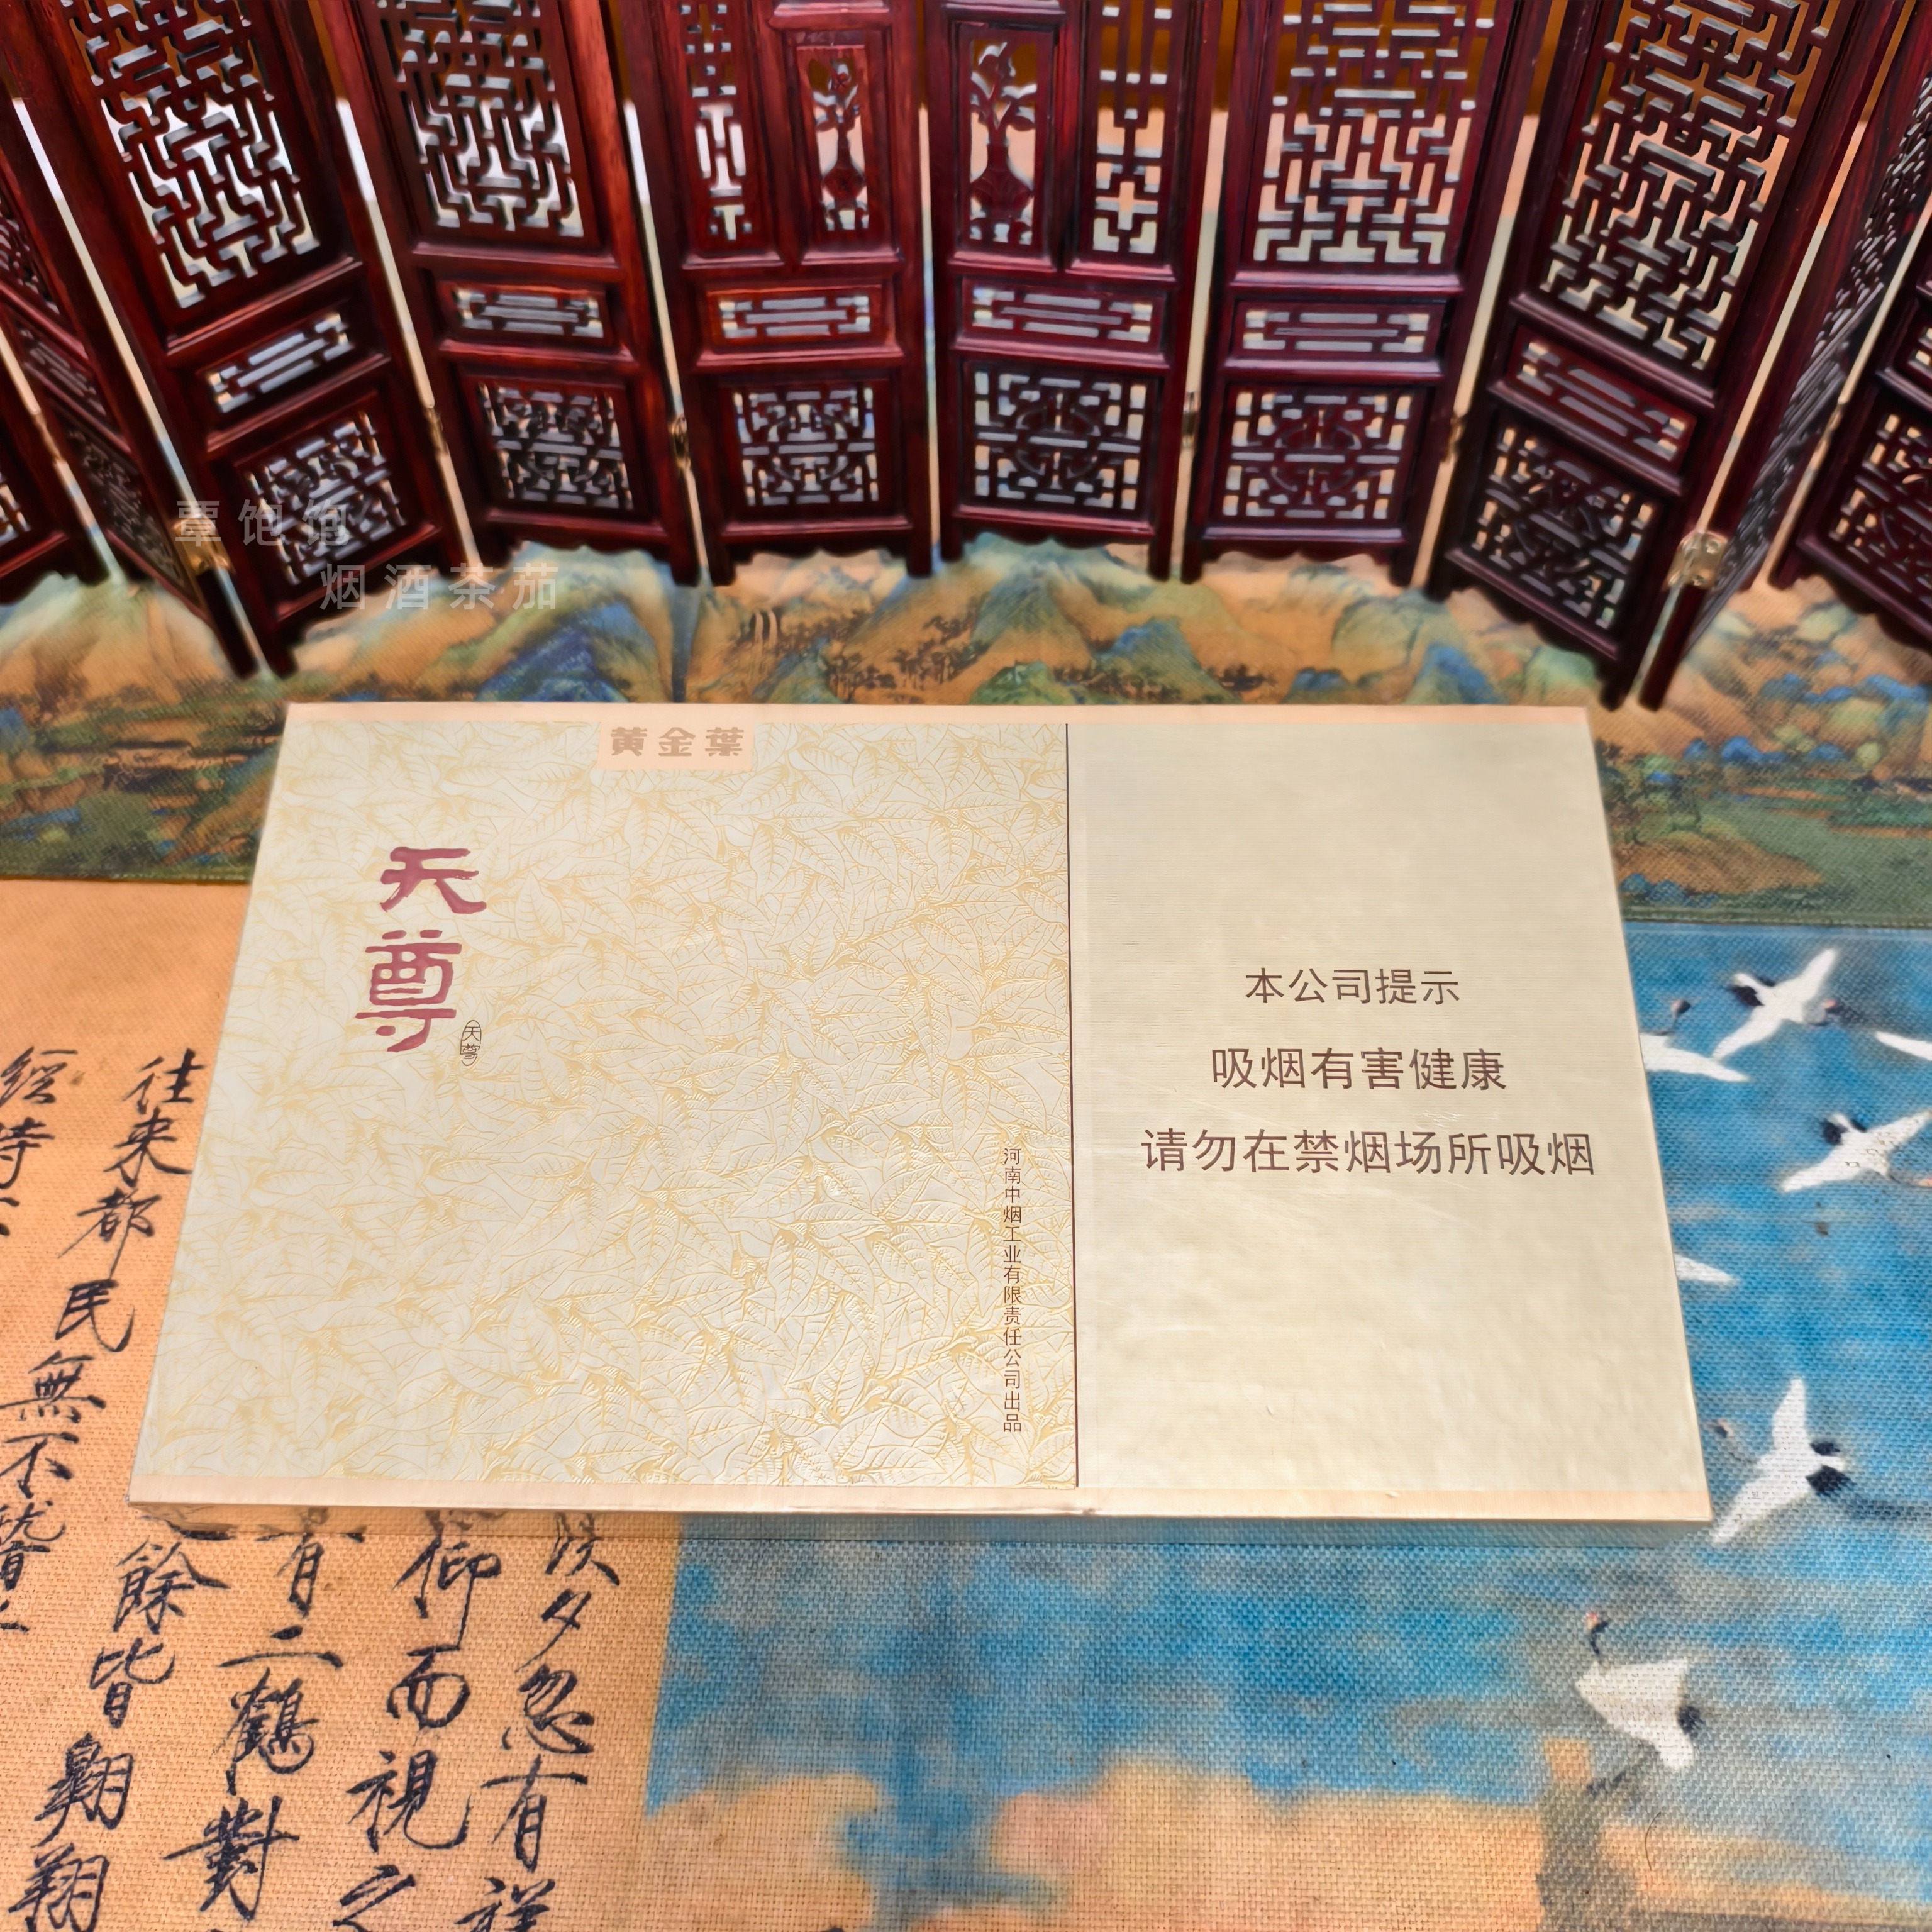 覃饱饱
烟酒茶茄
黄金葉
天尊
天尊
河南中烟工业有限责任公司出品
本公司提示
吸烟有害健康
请勿在禁烟场所吸烟
往来都民無不
餘皆翱翔
有二鶴對
仰而視之
夕忽有祥